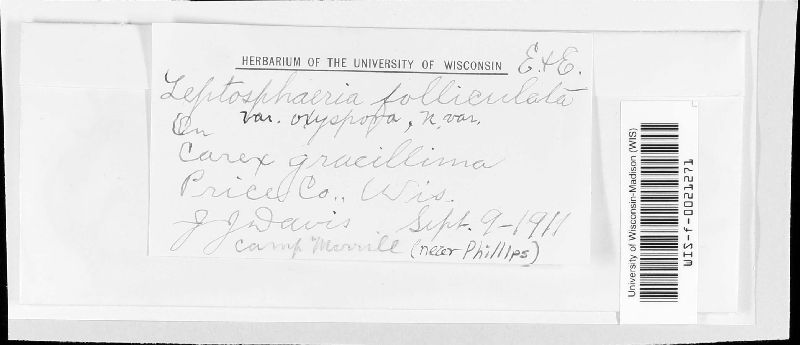 HERBARIUM OF THE UNIVERSITY OF WISCONSIN E. & E.
Leptosphaeria folliculata
On var. oxyspora, n. var.
Carex gracillima
Price Co., Wis.
J J Davis Sept. 9-1911
Camp Merrill (near Phillips)
University of Wisconsin-Madison (WIS)
WIS-f-0021271